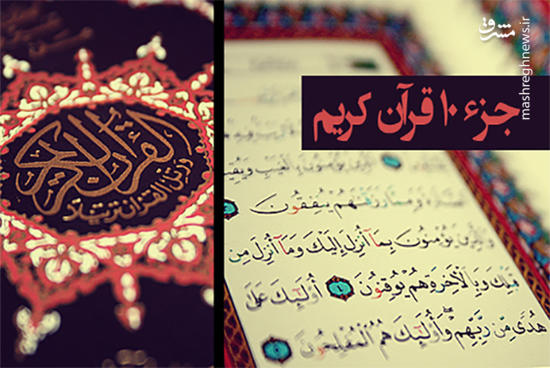 مشرق
mashreghnews.ir
جزء ۱۰ قرآن کریم
القرآن الكريم
ورتل القرآن ترتيلا
يُؤْمِنُونَ بِالْغَيْبِ وَيُقِيمُ
الصَّلَاةَ وَمِمَّا رَزَقْنَاهُمْ يُنْفِقُونَ ٣
وَالَّذِينَ يُؤْمِنُونَ بِمَا أُنْزِلَ إِلَيْكَ وَمَا أُنْزِلَ مِنْ
قَبْلِكَ وَبِالْآخِرَةِ هُمْ يُوقِنُونَ ٤ أُولَٰئِكَ عَلَىٰ
هُدًى مِنْ رَبِّهِمْ وَأُولَٰئِكَ هُمُ الْمُفْلِحُونَ ٥